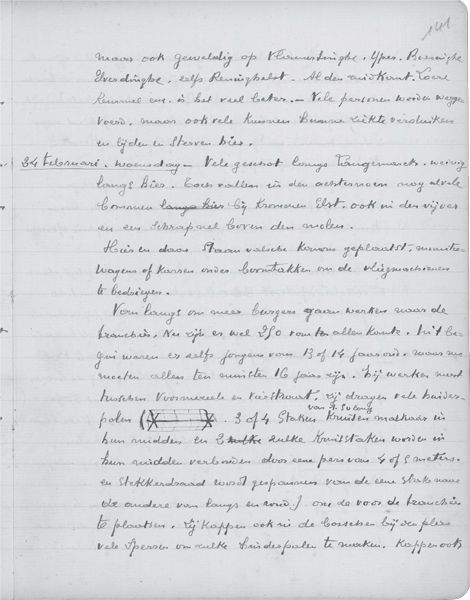 141
maar ook geweldig op Vlamertinghe, Yper, Boesinghe
Elverdinghe, zelfs Reninghelst. Al den zuidkant, Locre
Kemmel enz. is het veel beter. – Vele personen worden wegge
voerd, maar ook vele kunnen hunne ziekte verduiken
en lijden en sterven hier.
24 februari. woensdag – Vele geschot langs Langemarck. weinig
langs hier. Toch vallen in den achternoen nog al vele
bommen langs hier bij Krommen Elst, ook in den vijver
en een schrapnel boven den molen.
Hier en daar staan valsche kanons geplaatst,
wagens of karren onder boomtakken om de vliegmachienen
te bedriegen.
Van langs om meer burgers gaan werken naar de
tranchéis. Nu zijn er wel 250 van ten allen kante. In 't be
gin waren er zelfs jongens van 13 of 14 jaar oud, maar nu
moeten allen ten minste 16 jaar zijn. Zij werken meest
tusschen Voormezeele en Vierstraat. Zij dragen vele
palen ( 3 of 4 staken kruisen malkaar in
van 1.50 lang
hun midden en 2 zulke kruisstaken worden in
hun midden verbonden door eene pers van 4 of 5 meters
en stekkerdraad wordt gespannen van de eene staak naar
de andere van langs en rond.) om die voor de tranchéis
te plaatsen. Zij kappen ook in de bosschen bij den
vele sperren om zulke palen te maken. Kappen ook